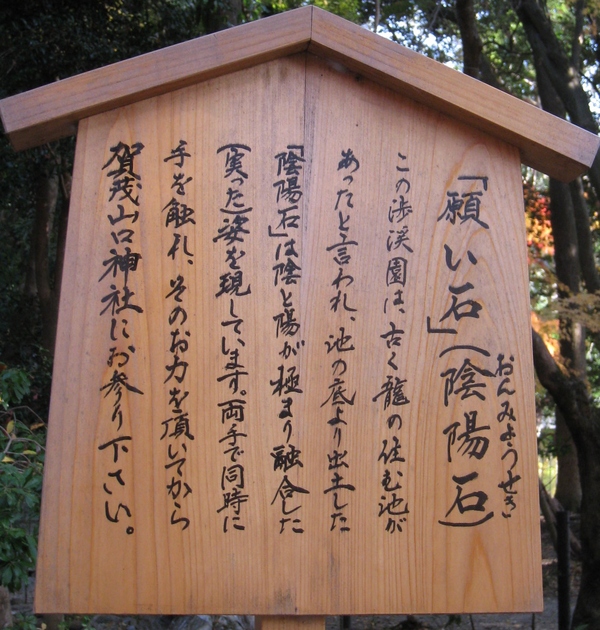 「願い石」(陰陽石)
おんみようせき
この渉渓園は、古く龍の住む池が
あったと言われ、池の底より出土した
「陰陽石」は陰と陽が極まり融合した
(実った)姿を現しています。両手で同時に
手を触れ、そのお力を頂いてから
賀茂山口神社にお参り下さい。